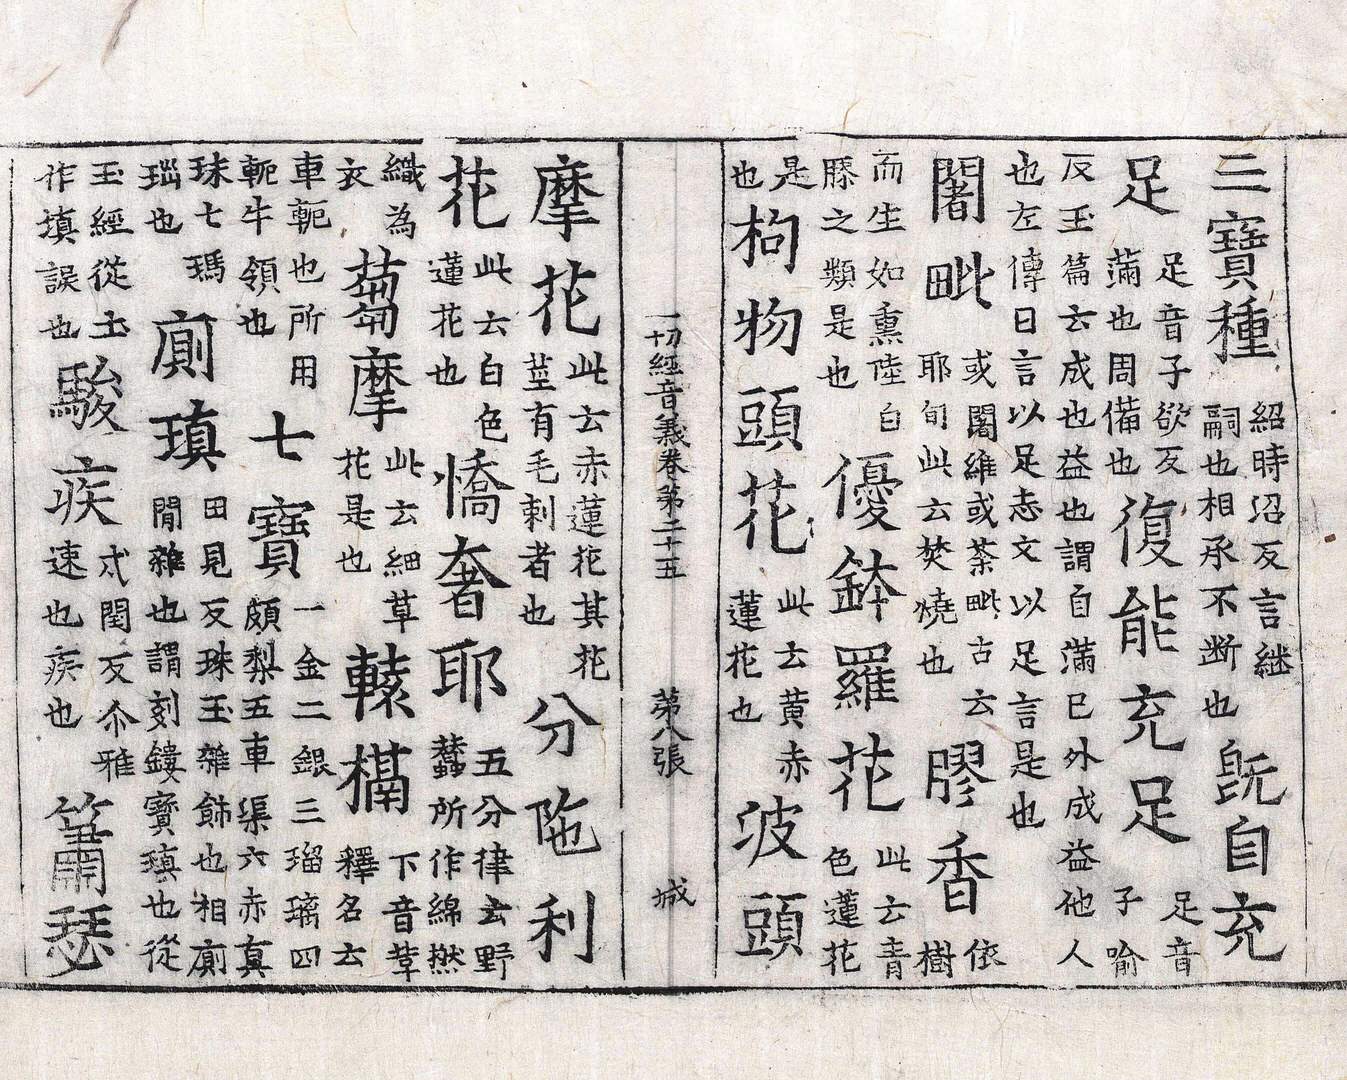 三寶種紹時沼反言継嗣也相承不断也既自充
足足音子欲反滿也周備也復能充足足音子喻
反玉篇云成也益也謂自滿已外成益他人也左傳曰言以足志文以足言是也
闍毗或闍維或荼毗古云耶旬此云焚燒也膠香依樹
而生如熏陸白膝之類是也優鉢羅花此云青色蓮花
是也枸物頭花此云黄赤蓮花也波頭
一切經音義卷第二十五 第八張 城
摩花此云赤蓮花其花莖有毛刺者也分陁利
花此云白色蓮花也憍奢耶五分律云野蠶所作綿撚
織為衣蒭摩此云細草花是也轅槅下音革釋名云
車軛也所用軛牛領也七寶一金二銀三瑠璃四頗梨五車渠六赤真
珠七瑪瑙也廁瑱田見反珠玉雜飾也相廁間雜也謂刻鏤寶瑱也從
玉經從土作填誤也駿疾忒閏反尒雅速也疾也簫瑟